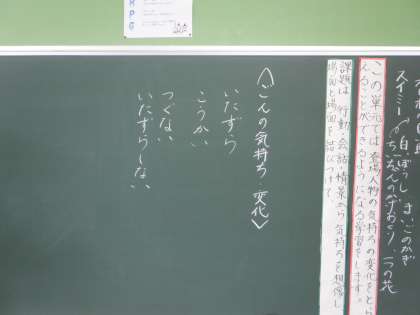 スイミー 白いぼうし
ちいちゃんのかげおくり 一つの花
この単元では、登場人物の気持ちの変化をとら
えることができるようになる学習をします。
課題は、行動・会話・情景から気持ちを想像し、
場面と場面を結びつけて、
〈ごんの気持ち・変化〉
いたずら
こうかい
つぐない
いたずらしない